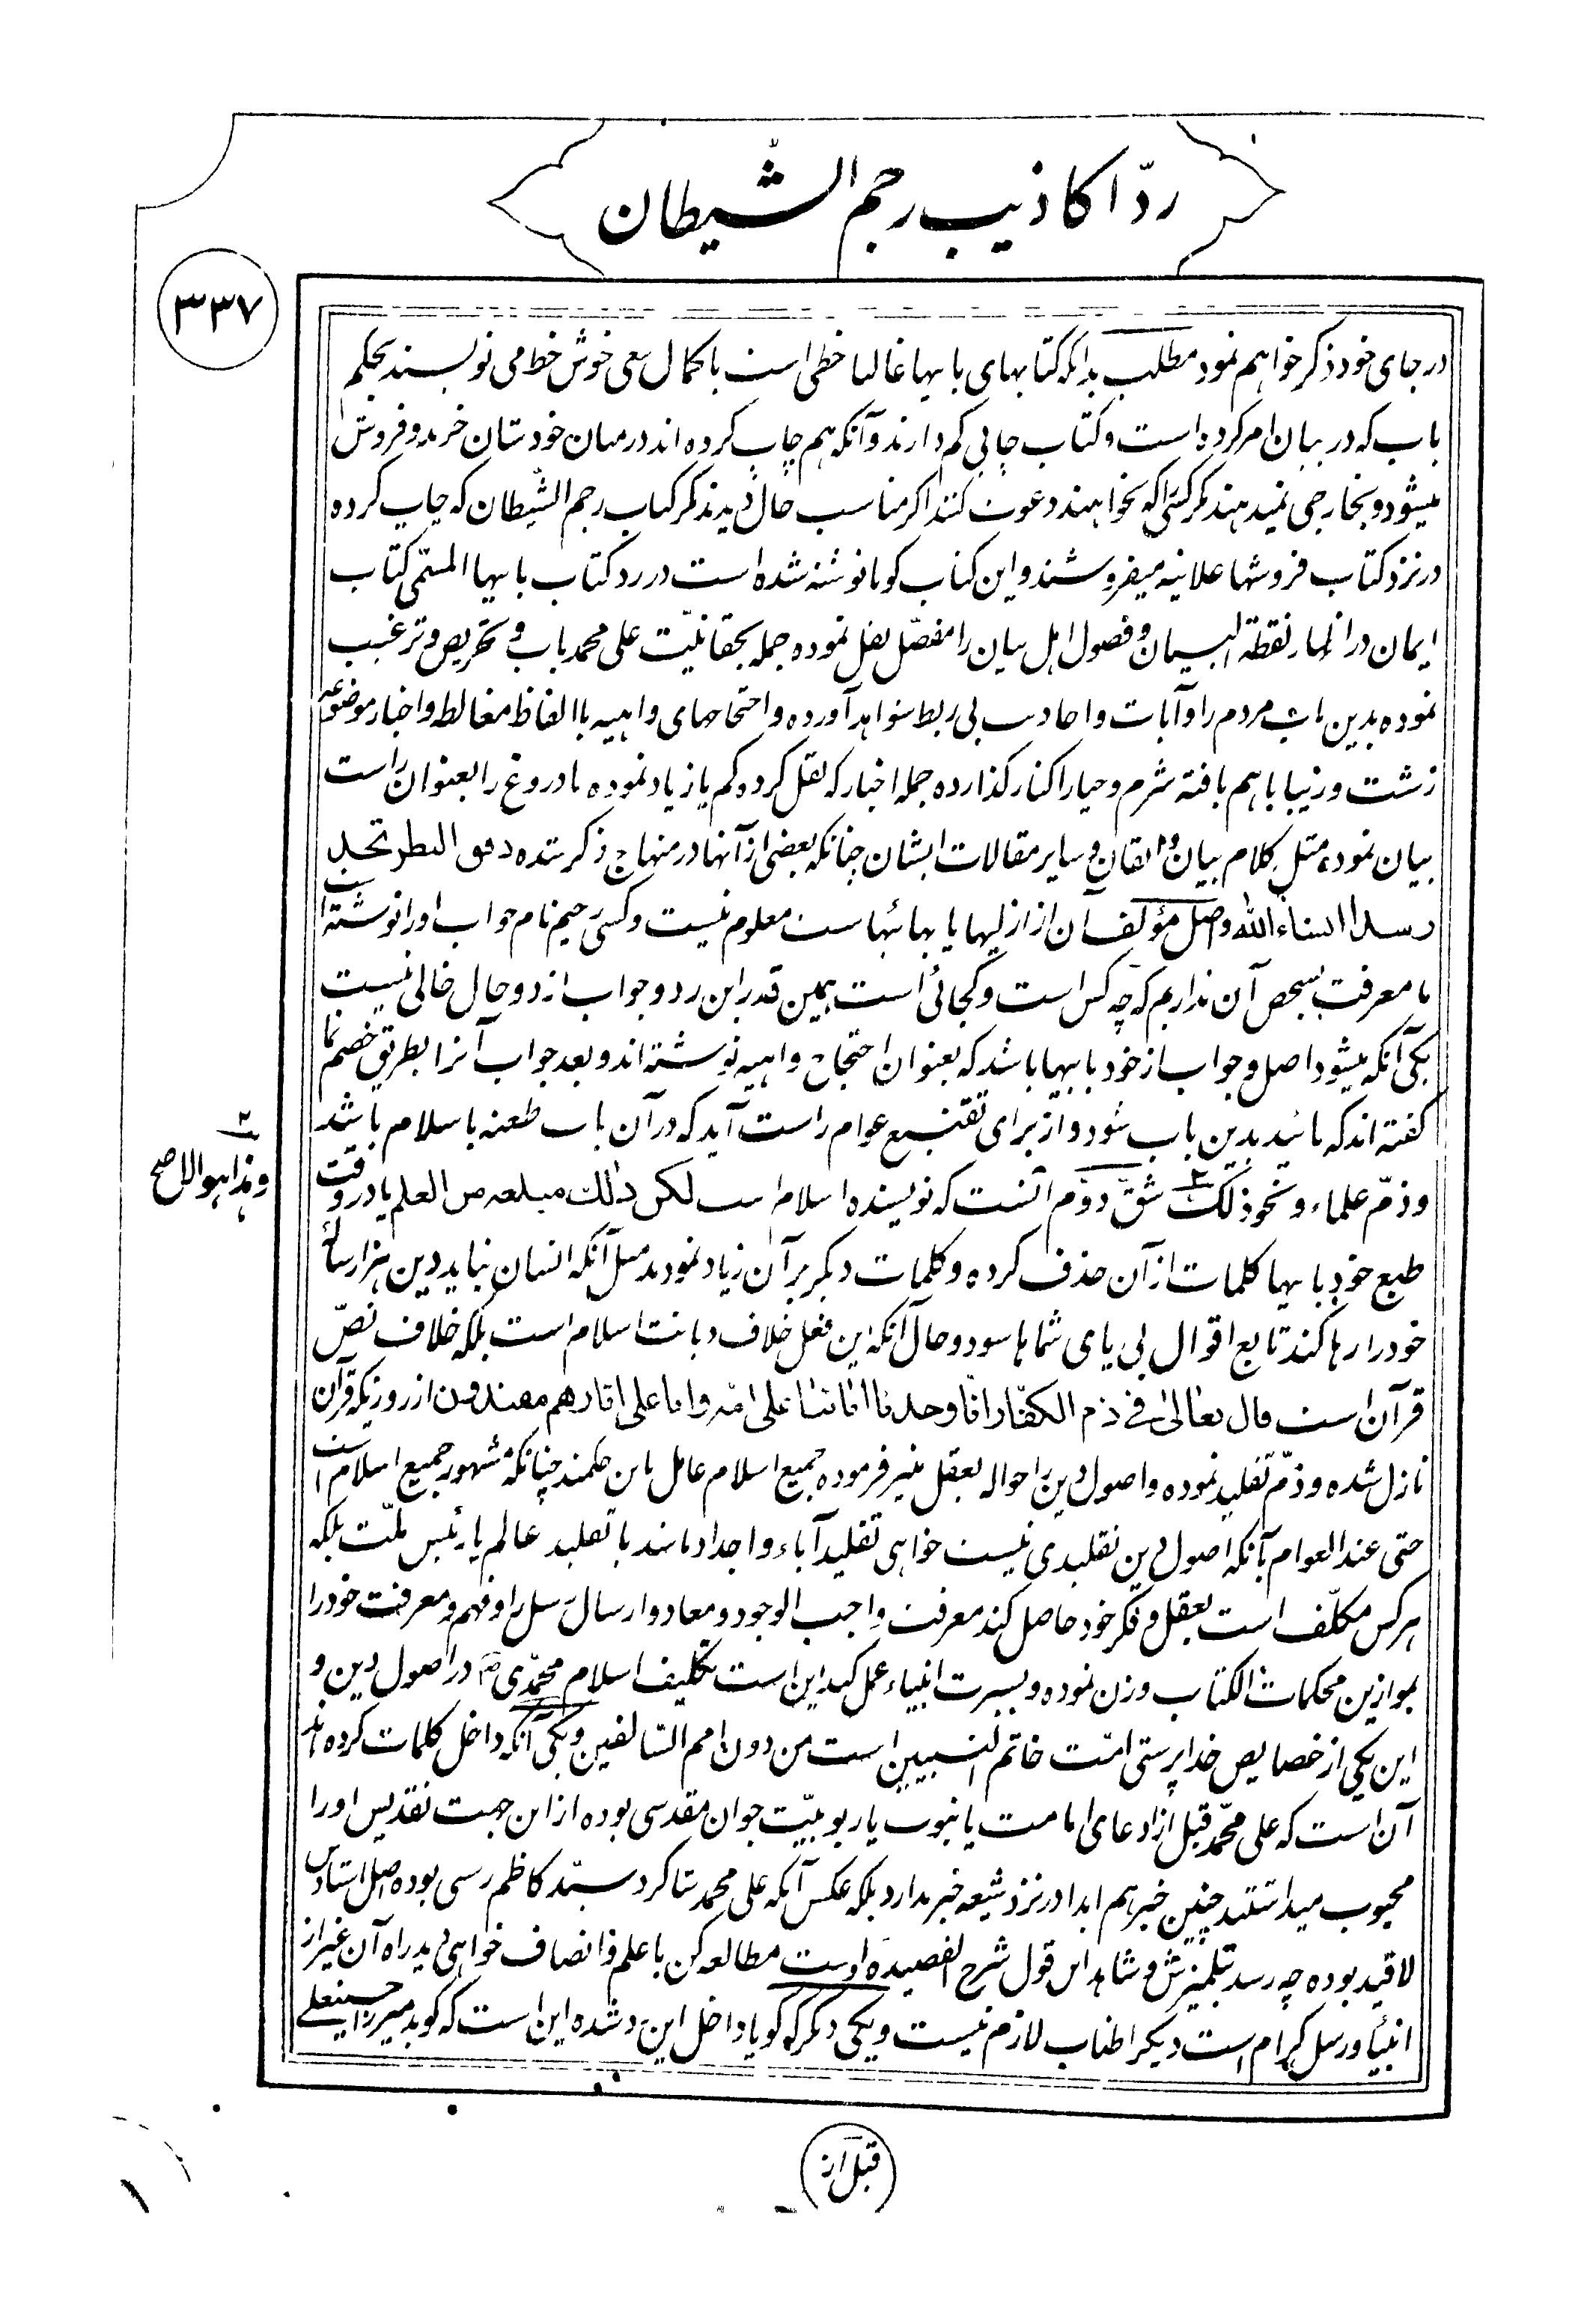 ردّ اکاذیب رجم الشّیطان
۳۳۷
در جای خود ذکر خواهم نمود مطلب بدانکه کتابهای بابیها غالبا خطی است با کمال سعی خوش خط می نویسند بحکم
باب که در بیان امر کرده است و کتاب چاپی کم دارند و آنکه هم چاپ کرده اند در میان خودشان خرید و فروش
میشود و بخارجی نمیدهند مگر کسی را که بخواهند دعوت کنند اگر مناسب حال دیدند مگر کتاب رجم الشّیطان که چاپ کرده
در نزد کتاب فروشها علانیه میفروشند و این کتاب کویا نوشته شده است در رد کتاب بابیها المسمّی کتاب
ایمان در اظهار نقطة البیان و فصول اهل بیان را مفصّل نقل نموده جمله بحقانیّت علی محمد باب و تحریص و ترغیب
نموده بدین باب مردم را و آیات و احادیث بی ربط شواهد آورده و احتجاجهای واهیه با الفاظ مغالطه و اخبار موضوعه
زشت و زیبا باهم بافته شرم و حیا را کنار کذارده جمله اخبار که نقل کرده کم یا زیاد نموده یا دروغ را بعنوان راست
بیان نموده مثل کلام بیان و ایقان و سایر مقالات ایشان چنانکه بعضی از آنها در منهاج ذکر شده دقق النظر تجد
انشاءالله و اصل مؤلف آن از ازلیها یا بهائیهاست معلوم نیست و کسی رحیم نام جواب او را نوشته است
ما معرفت بشخص آن نداریم که چه کس است و کجائی است همین قدر این رد و جواب از دو حال خالی نیست
یکی آنکه میشود اصل و جواب از خود بابیها باشد که بعنوان احتجاج واهیه نوشته اند و بعد جواب آنرا بطریق خصم نما
کفته اند که تائید بدین باب شود و از برای تقنیع عوام راست آید که در آن باب طعنه باسلام باشد
و ذمّ علماء و نحو ذلک ۲ شقّ دوّم آنست که نویسنده اسلام است لکن ذلک مبلغه من العلم یا در وقت
۲ و هذا هو الاصح
طبع خود بابیها کلمات از آن حذف کرده و کلمات دیکر بر آن زیاد نمودند مثل آنکه انسان نباید دین هزار ساله
خود را رها کند تابع اقوال بی پای شماها شود و حال آنکه این فعل خلاف دیانت اسلام است بلکه خلاف نصّ
قرآن است قال تعالی فی ذم الکفّار انّا وجدنا اٰبائنا علی امّة و انا علی اٰثارهم مقتدون از روزیکه قرآن
نازل شده و ذمّ تقلید نموده و اصول دین را حواله بعقل منیر فرموده جمیع اسلام عامل باین حکمند چنانکه مشهور جمیع اسلام است
حتی عند العوام بآنکه اصول دین تقلیدی نیست خواهی تقلید آباء و اجداد باشد یا تقلید عالم یا رئیس ملّت بلکه
هر کس مکلّف است بعقل و فکر خود حاصل کند معرفت واجب الوجود و معاد و ارسال رسل را و فهم و معرفت خود را
بموازین محکمات الکتاب وزن نموده و بسیرت انبیاء عمل کند این است تکلیف اسلام محمّدی ص در اصول دین و
این یکی از خصایص خدا پرستی امّت خاتم النبیین است من دون امم السّالفین و یکی آنکه داخل کلمات کرده اند
آن است که علی محمّد قبل از ادعای امامت یا نبوت یا ربوبیّت جوان مقدسی بوده از این جهت تقدیس او را
محبوب میداشتند چنین خبر هم ابدا در نزد شیعه خبر ندارد بلکه عکس آنکه علی محمد شاکرد سیّد کاظم رشتی بوده اصل استادش
لا قید بوده چه رسد تبلمیزش و شاهد این قول شرح القصیده اوست مطالعه کن با علم و انصاف خواهی دید راه آن غیر از
انبیاء و رسل کرام است دیکر اطناب لازم نیست و یکی دیکر که کویا داخل این رد شده این است که کوید میرزا حسینعلی
قبل از